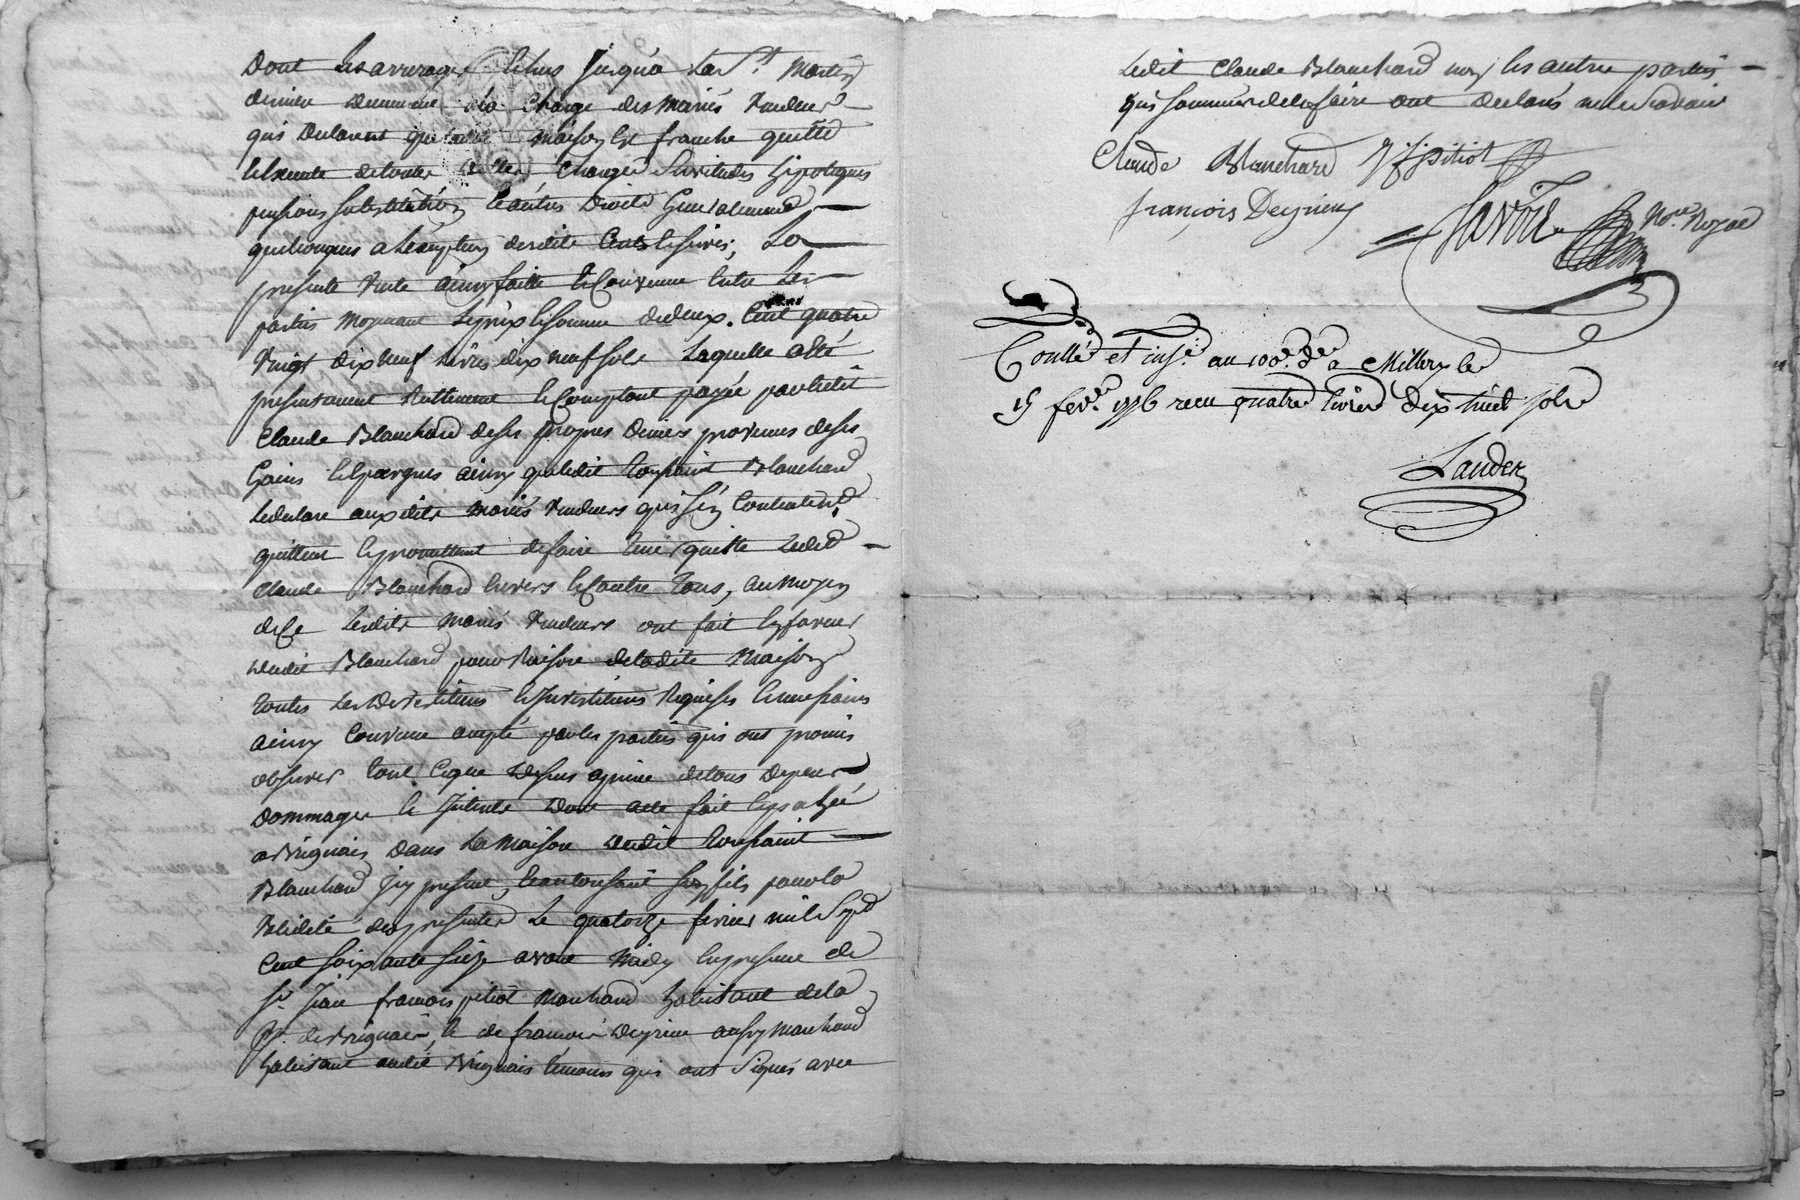 Dont les arrerages Echus jusqu'a la St. Martin
derniere demeure a la charge des mariés vendeurs
qui declarent que ladite maison Est franche quitte
et exente de toutes autres charges servitudes hipoteques
pensions substitution et autres droits generalement
quelconques a l'exception desdits Cens et servis; La
presente vente ainsy faitte et Convenue entre les
parties moyenant le prix et somme de deux Cent quatre
vingt dix neuf livres dix neuf sols laquelle a été
presentement reellement et Comptant payée par ledit
Claude Blanchard de ses propres deniers provenus de ses
Gains et Epargnes ainsy que ledit toussaint Blanchard
le declare auxdits mariés vendeurs qui s'en Contentent
quittent et promettent de faire tenir quitte ledit
Claude Blanchard Envers et Contre tous, au moyen
de Ce lesdits mariés vendeurs ont fait En faveur
dudit Blanchard pour raison de ladite maison
toutes les devestitures et investitures requises et necessaires
ainsy Convenu accepté par les parties qui ont promis
observer tout Ceque dessus a peine de tous depens
dommages et interets dont acte fait et passé
a Brignais dans la maison dudit toussaint
Blanchard y present, et autorisant son fils pour la
validité des presentes le quatorze fevrier mil sept
Cent soixante seize avant midy En presence de
sr. jean francois pitiot marchand habitant de la
psse. de Brignais, et de francois deyrieu aussy marchand
habitant audit Brignais temoins qui ont signés avec
Ledit Claude Blanchard non les autres parties
qui sommées de le faire ont declarés ne le savoir
Claude Blanchard J f pitiot
françois Deyrieu
Savoie Nore. Royal
Conllé et insé. au 100e. de. a Millery le
15 fevr. 1776 recu quatre livres dix huit sols
Landez